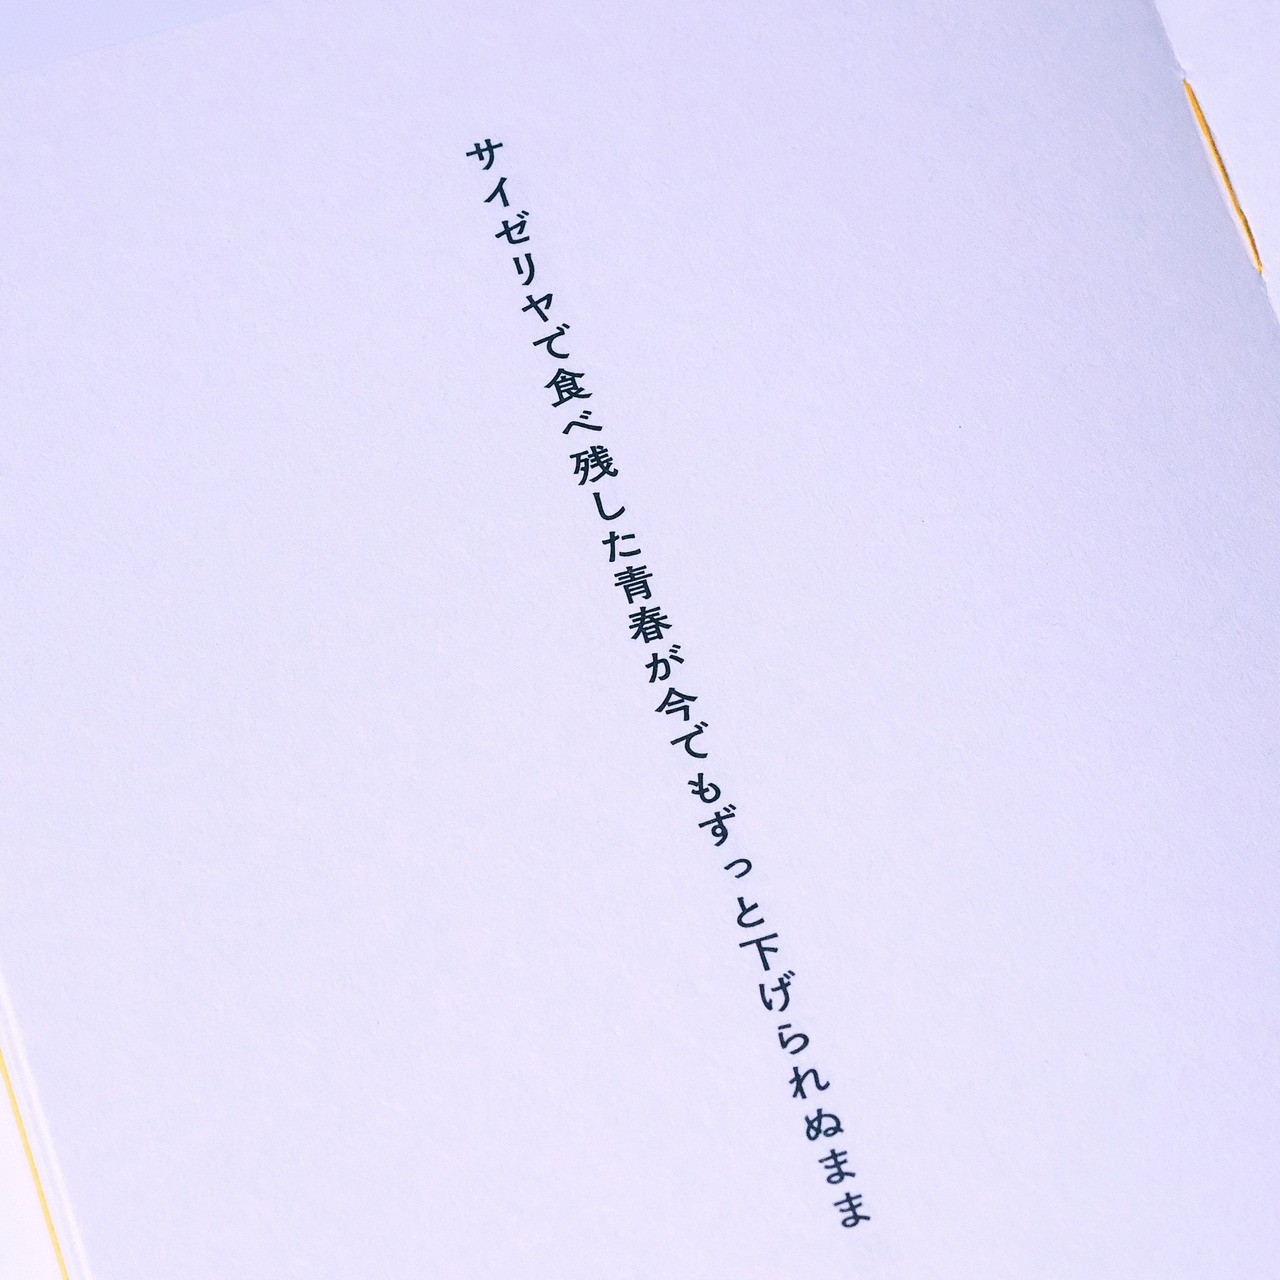 サイゼリヤで食べ残した青春が今でもずっと下げられぬまま